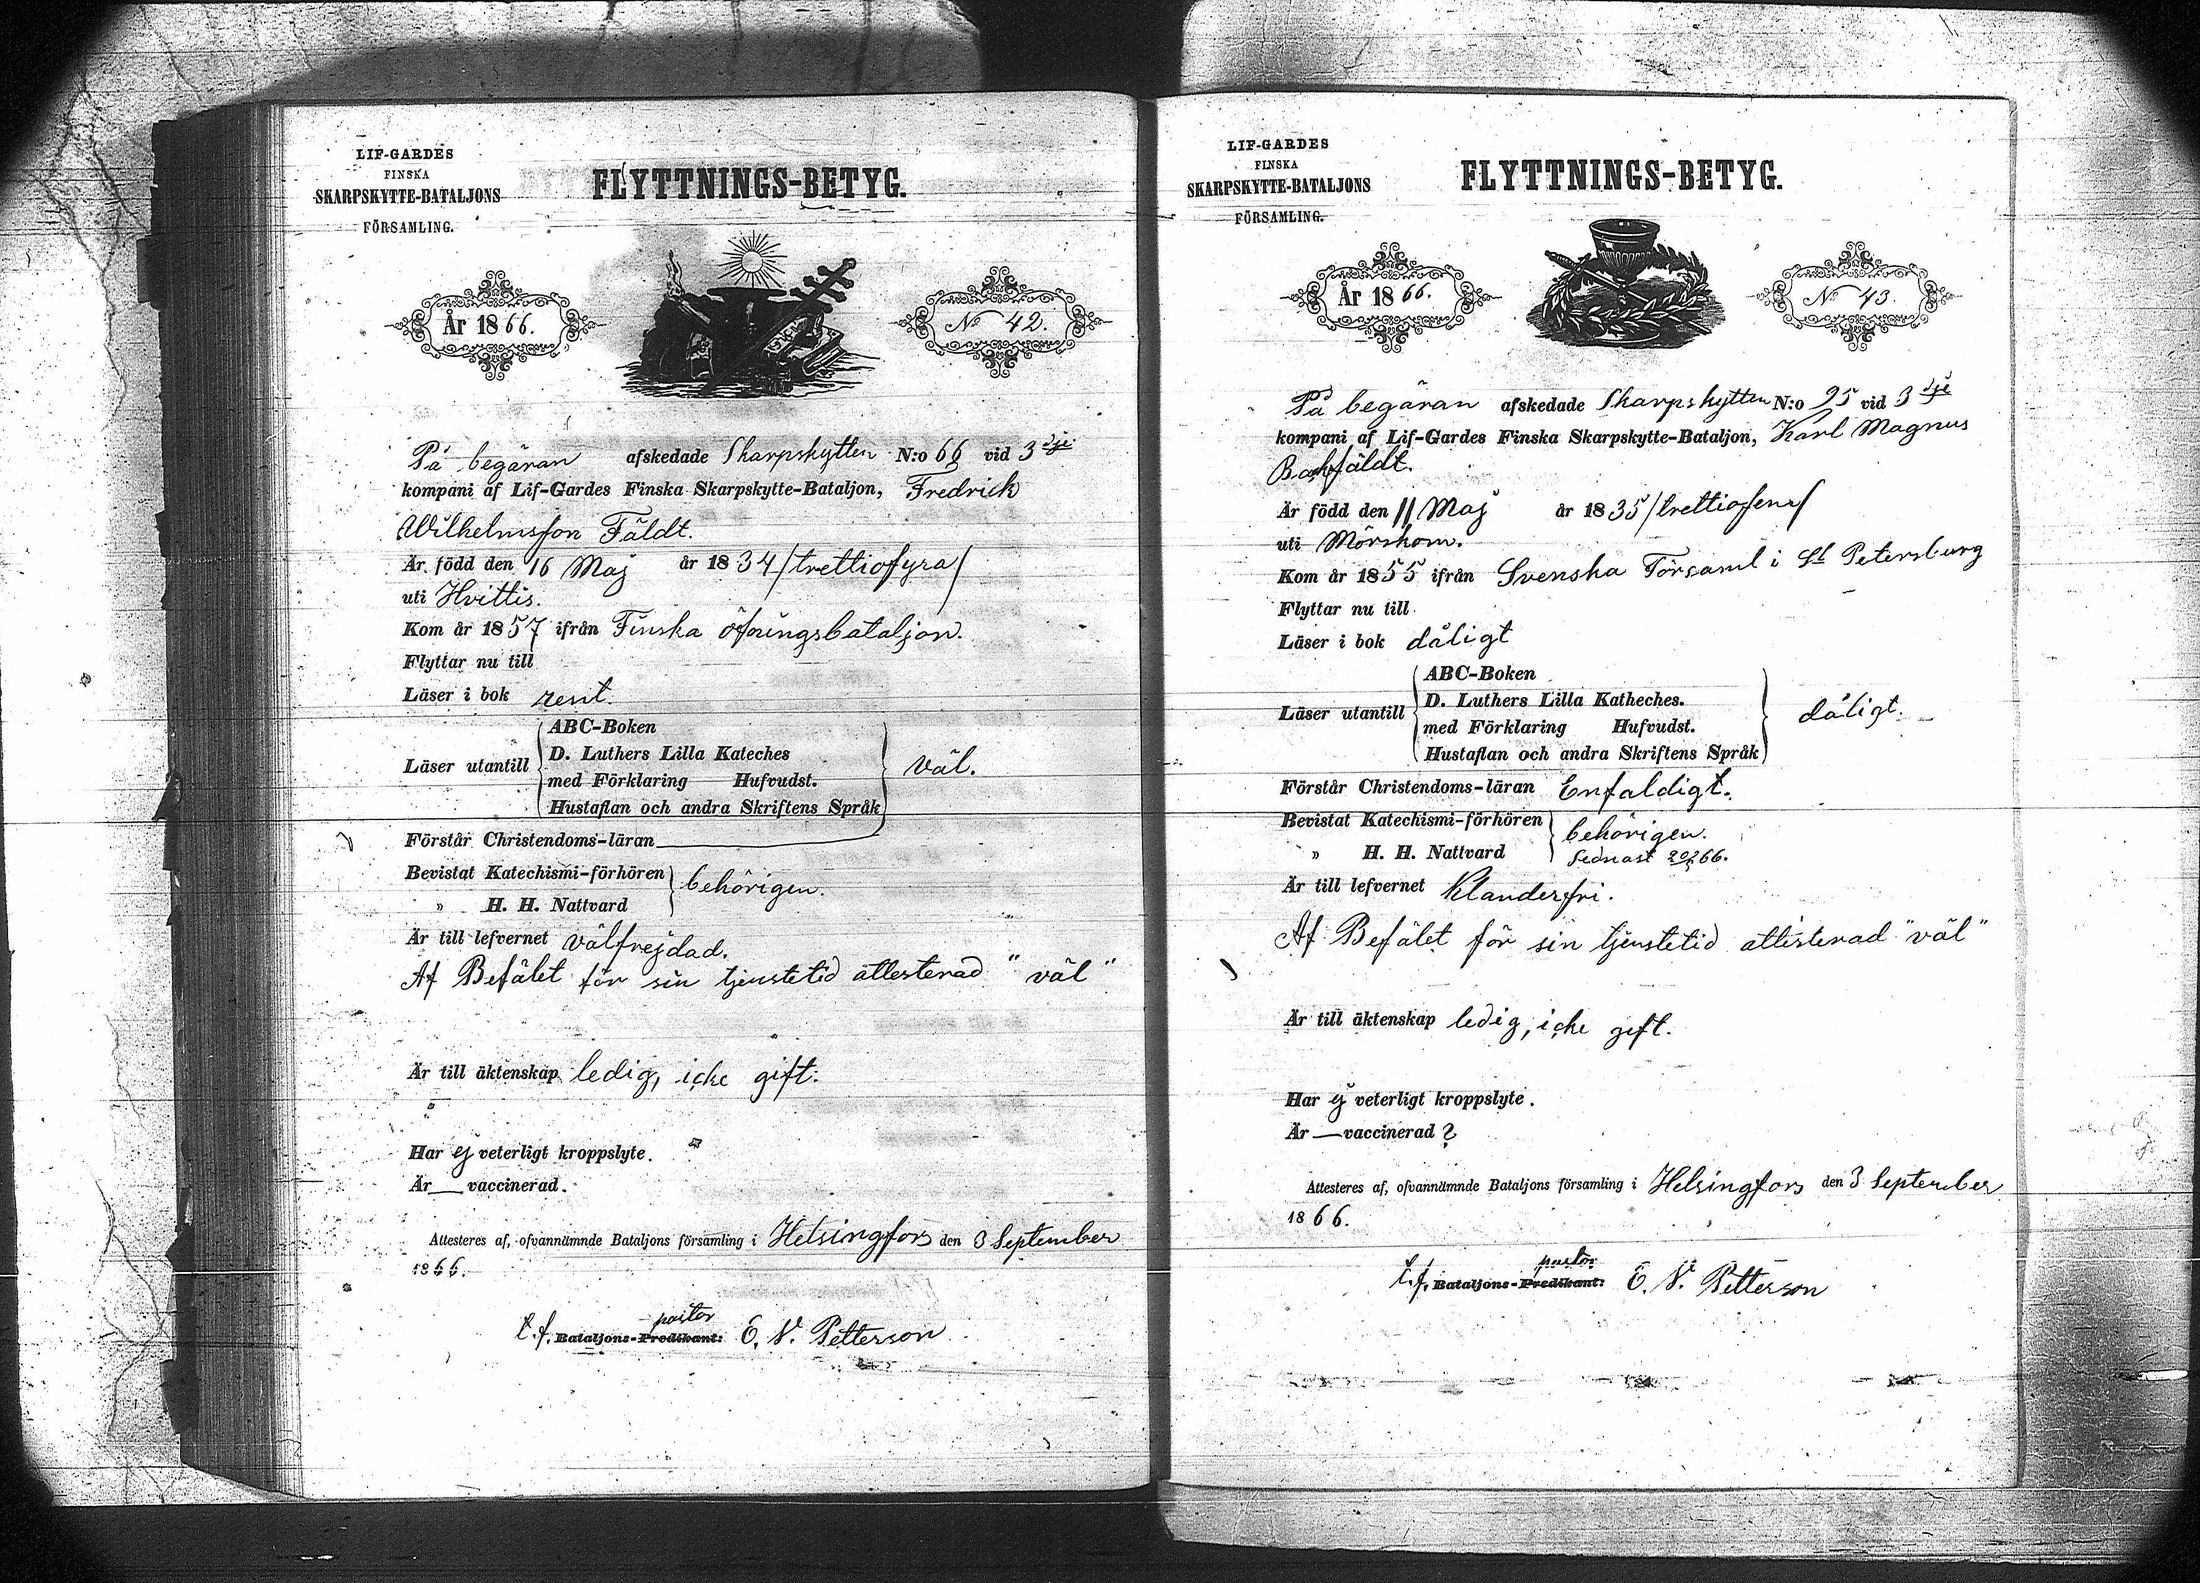 LIF-GARDES
FINSKA
SKARPSKYTTE-BATALJONS
FÖRSAMLING.
FLYTTNINGS-BETYG.
År 1866.
No 42.
På begäran afskedade Skarpskytten N:o 66 vid 3dje
kompani af Lif-Gardes Finska Skarpskytte-Bataljon, Fredrick
Wilhelmsson Fäldt.
Är född den 16 Maj år 1834 /trettiofyra/
uti Hvittis.
Kom år 1857 ifrån Finska öfningsbataljon.
Flyttar nu till
Läser i bok rent.
Läser utantill
ABC-Boken
D. Luthers Lilla Kateches
med Förklaring Hufvudst.
Hustaflan och andra Skriftens Språk
väl.
Förstår Christendoms-läran
Bevistat Katechismi-förhören
» H. H. Nattvard
behörigen.
Är till lefvernet välfrejdad.
Af Befälet för sin tjenstetid attesterad "väl"
Är till äktenskap ledig, icke gift.
Har ej veterligt kroppslyte.
Är — vaccinerad.
Attesteres af, ofvannämnde Bataljons församling i Helsingfors den 3 September
1866.
pastor
t.f. Bataljons-Predikant: E. V. Petterson
LIF-GARDES
FINSKA
SKARPSKYTTE-BATALJONS
FÖRSAMLING.
FLYTTNINGS-BETYG.
År 1866.
No 43.
På begäran afskedade Skarpskytten N:o 95 vid 3dje
kompani af Lif-Gardes Finska Skarpskytte-Bataljon, Karl Magnus
Backfäldt.
Är född den 11 Maj år 1835 /trettiofem/
uti Mörskom.
Kom år 1855 ifrån Svenska Församl i St Petersburg
Flyttar nu till
Läser i bok dåligt
Läser utantill
ABC-Boken
D. Luthers Lilla Katheches.
med Förklaring Hufvudst.
Hustaflan och andra Skriftens Språk
dåligt.
Förstår Christendoms-läran Enfaldigt.
Bevistat Katechismi-förhören
» H. H. Nattvard
behörigen.
sednast 66.
Är till lefvernet klanderfri.
Af Befälet för sin tjenstetid attesterad "väl"
Är till äktenskap ledig, icke gift.
Har ej veterligt kroppslyte.
Är — vaccinerad ?
Attesteres af, ofvannämnde Bataljons församling i Helsingfors den 3 September
1866.
pastor
t.f. Bataljons-Predikant: E. V. Petterson